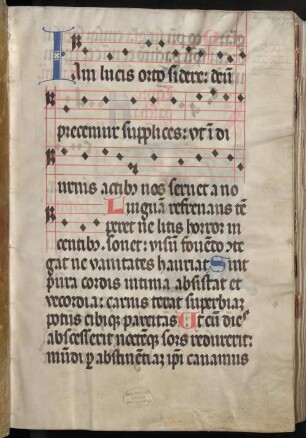 Iam lucis orto sidere: deū
precemur supplices: vt ī di
urnis actibꝫ nos seruet a no
Linguā refrenans tē
peret ne litis horror in
centibꝫ. sonet: visū fouēdo ɔte
gat ne vanitates hauriat Sint
pura cordis intima absistat et
vecordia: carnis terat superbiaꝫ
potus cibiqꝫ parcitas Ut cū dies
abscesserit noctēqꝫ sors reduxerit:
mūdi ꝑ abstinētiaꝫ ip̄i canamus